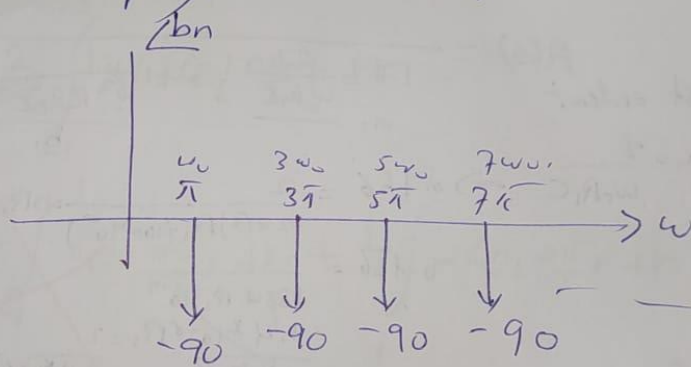 ∠bn
ω₀ 3ω₀ 5ω₀ 7ω₀
π 3π 5π 7π
ω
-90 -90 -90 -90